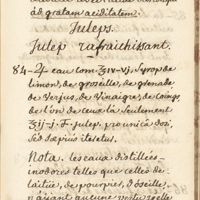 ab gratam aciditatem.
Juleps.
Julep rafraichissant.
84 - ♃ eau com. ℥iv-vj. Syrop de
limon, de groseille, de grenade
de Verjus, de Vinaigre, de coings
de l'un de ceux la seulement
℥ij - j. F. julep. pro unica dosi,
sed sæpius iteretur.
Nota. les eaux distillées
inodores telles que celles de
laitue, de pourpier, d'oseille,
n'ayant aucune vertu réelle